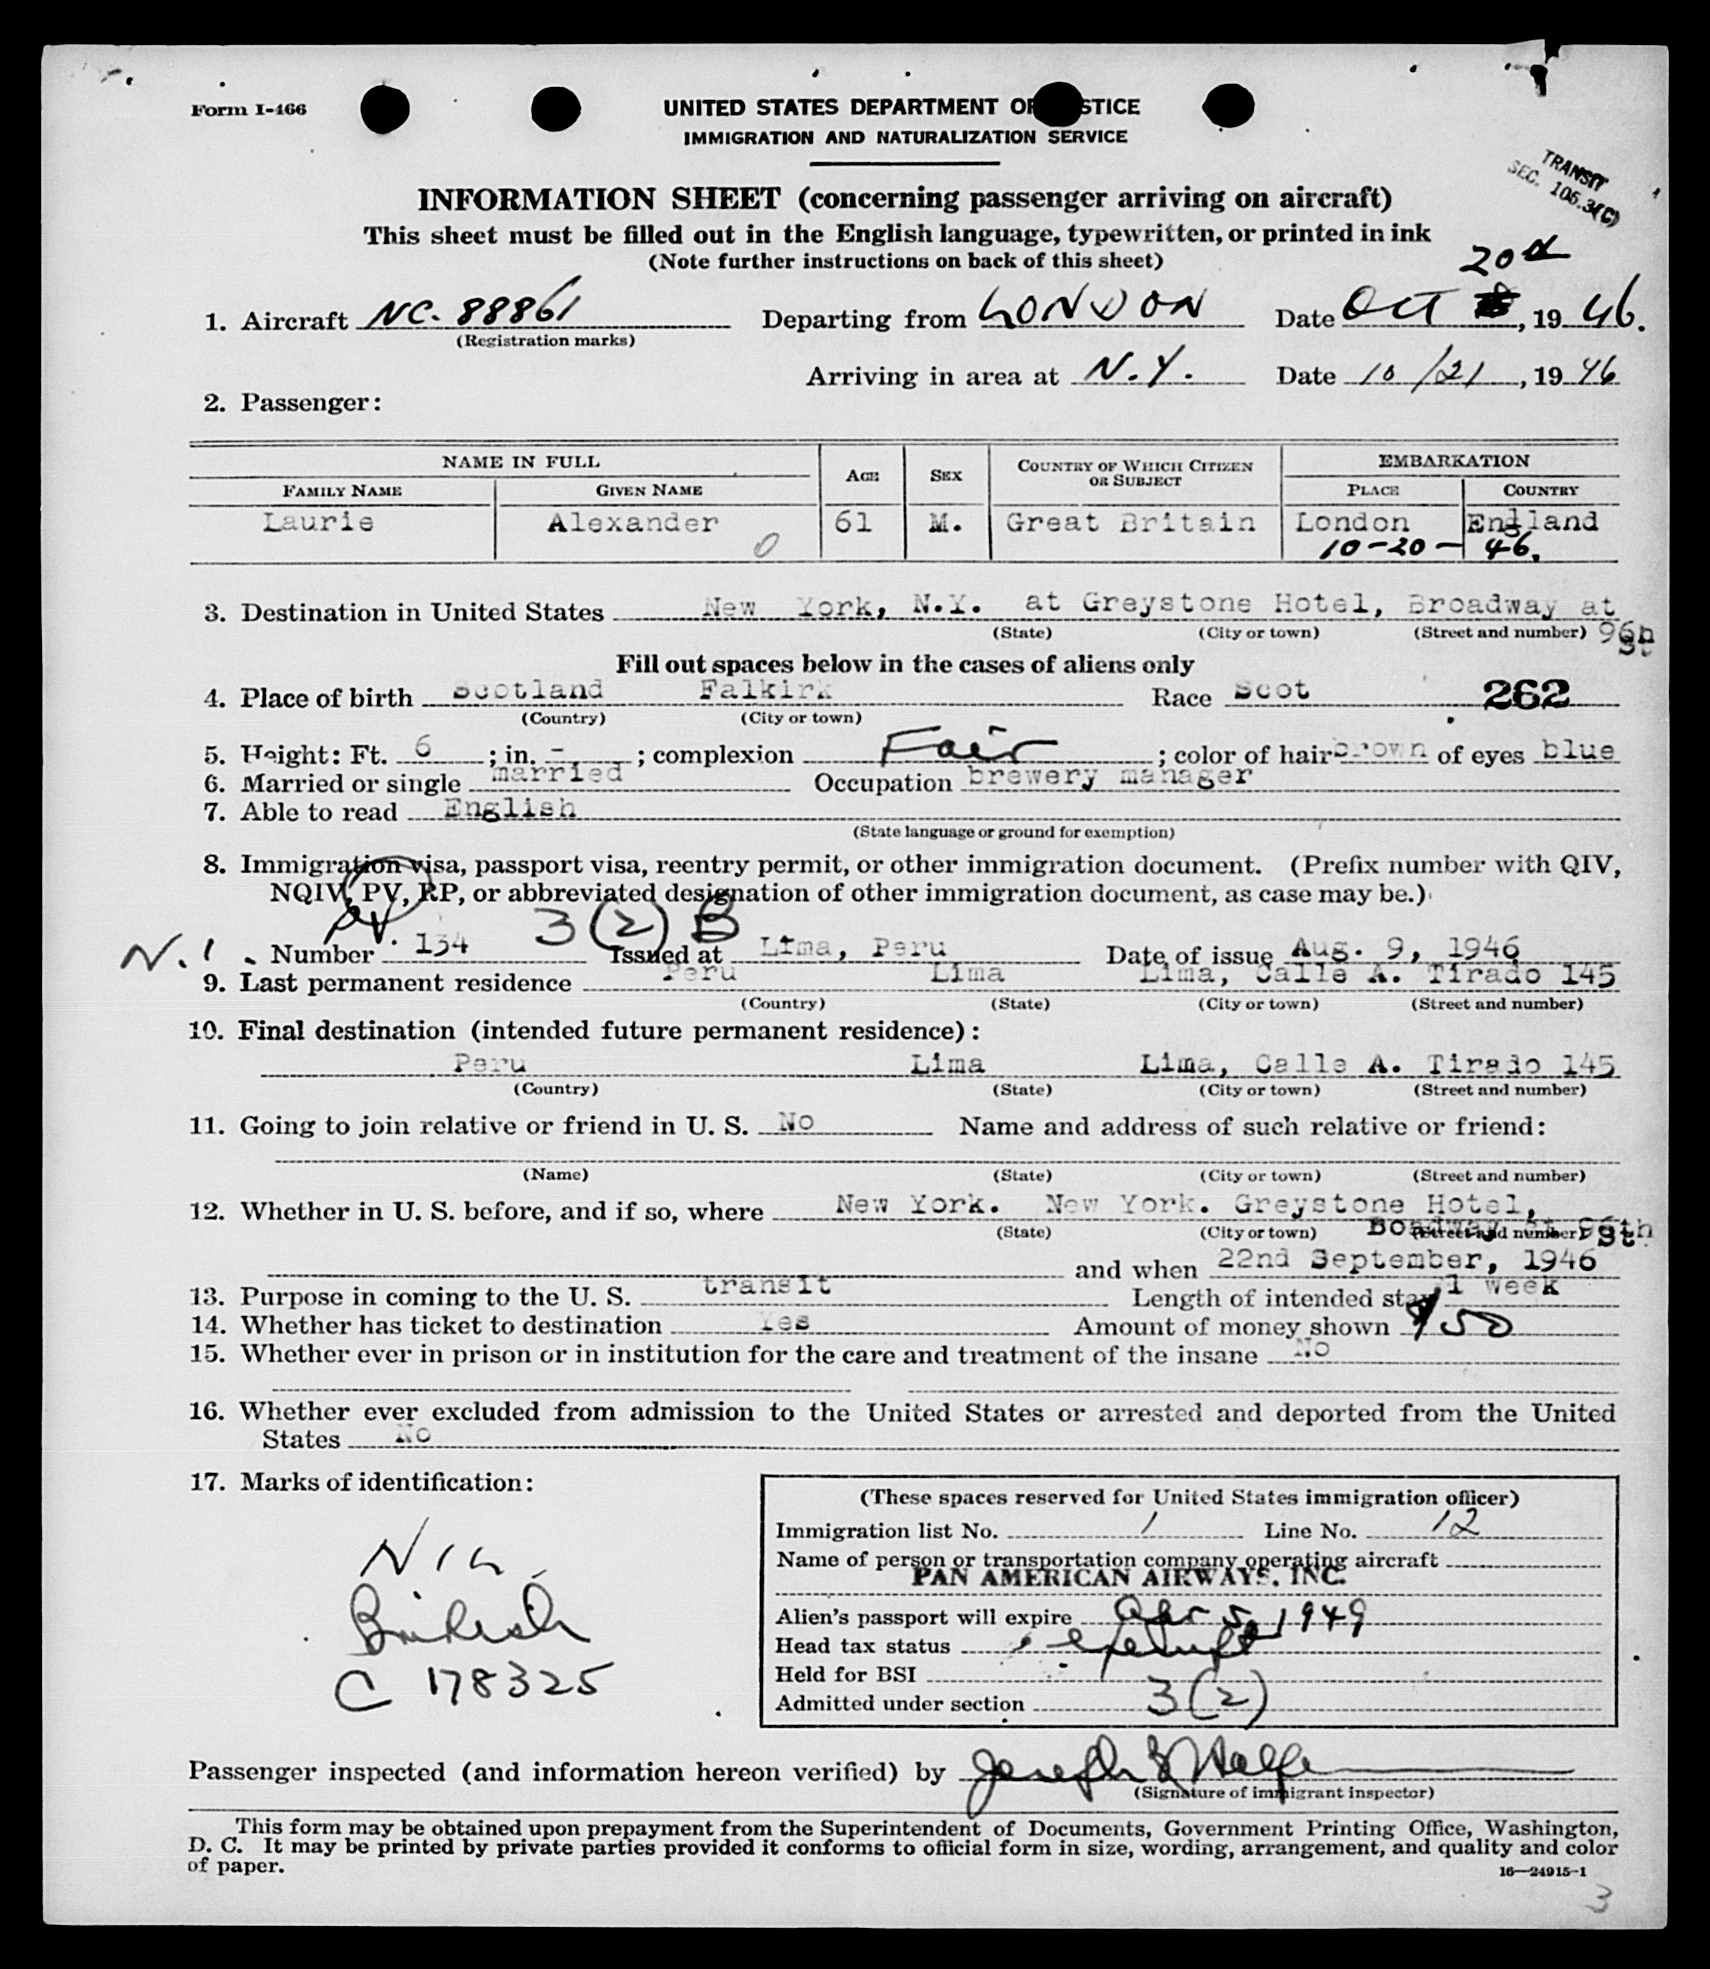 Form I-466
UNITED STATES DEPARTMENT OF JUSTICE
IMMIGRATION AND NATURALIZATION SERVICE
TRANSIT
SEC. 105.3(C)
INFORMATION SHEET (concerning passenger arriving on aircraft)
This sheet must be filled out in the English language, typewritten, or printed in ink
(Note further instructions on back of this sheet)
20th
1. Aircraft NC. 88861 Departing from LONDON Date OCT , 19 46.
(Registration marks)
Arriving in area at N.Y. Date 10/21, 19 46
2. Passenger:
NAME IN FULL AGE SEX COUNTRY OF WHICH CITIZEN OR SUBJECT EMBARKATION
FAMILY NAME GIVEN NAME PLACE COUNTRY
Laurie Alexander 61 M. Great Britain London England
0 10-20-46.
3. Destination in United States New York, N.Y. at Greystone Hotel, Broadway at
(State) (City or town) (Street and number) 96th St
Fill out spaces below in the cases of aliens only
4. Place of birth Scotland Falkirk Race Scot 262
(Country) (City or town)
5. Height: Ft. 6 ; in. - ; complexion Fair ; color of hair brown of eyes blue
6. Married or single married Occupation brewery manager
7. Able to read English
(State language or ground for exemption)
8. Immigration visa, passport visa, reentry permit, or other immigration document. (Prefix number with QIV,
NQIV, PV, RP, or abbreviated designation of other immigration document, as case may be.)
PV 3(2) B
N.1. Number 134 Issued at Lima, Peru Date of issue Aug. 9, 1946
9. Last permanent residence Peru Lima Lima, Calle A. Tirado 145
(Country) (State) (City or town) (Street and number)
10. Final destination (intended future permanent residence):
Peru Lima Lima, Calle A. Tirado 145
(Country) (State) (City or town) (Street and number)
11. Going to join relative or friend in U. S. No Name and address of such relative or friend:
(Name) (State) (City or town) (Street and number)
12. Whether in U. S. before, and if so, where New York. New York. Greystone Hotel,
(State) (City or town) (Street and number) Boadway at 96th St.
and when 22nd September, 1946
13. Purpose in coming to the U. S. transit Length of intended stay 1 week
14. Whether has ticket to destination Yes Amount of money shown $50
15. Whether ever in prison or in institution for the care and treatment of the insane No
16. Whether ever excluded from admission to the United States or arrested and deported from the United
States No
17. Marks of identification:
(These spaces reserved for United States immigration officer)
Immigration list No. 1 Line No. 12
Name of person or transportation company operating aircraft
PAN AMERICAN AIRWAYS, INC.
Alien's passport will expire Apr 5, 1949
Head tax status exempt
Held for BSI
Admitted under section 3(2)
British
C 178325
Passenger inspected (and information hereon verified) by Joseph
(Signature of immigrant inspector)
This form may be obtained upon prepayment from the Superintendent of Documents, Government Printing Office, Washington,
D. C. It may be printed by private parties provided it conforms to official form in size, wording, arrangement, and quality and color
of paper.
16—24915-1
3